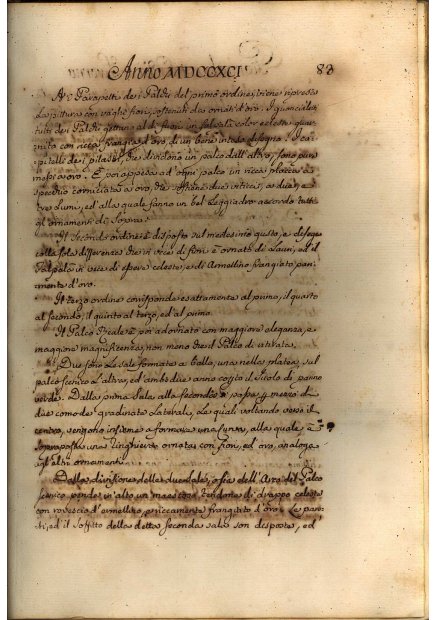 Anno MDCCXCI 83
A i Parapetti dei Palchi del primo ordine, viene ripresa
la pittura con vaghi fiori, ostenuti da ornati d'oro. I quancialetti
tutti dei Palchi gettano al di fuori un falsalà color celeste guar-
nito con ricca frangia d'oro, di un bene inteso disegno. I ca-
pitelli dei pilastri, che dividono un palco dall'altro, sono pur
messi a oro. E poi appesa ad ogni palco un ricca placca a
specchio corniciata a oro, che sostiene due viticci, a due, e
tre lumi, ed alla quale fanno un bel leggiadro accordo tutti
gli ornamenti di sopra.
Il secondo ordine è disposto sul medesimo gusto, a disegno
colla sola differenza che in vece di fiori è ornato di Lauri, ed il
falpalà in vece di essere celeste, è di Armellino frangiato pari-
mente d'oro.
Il terzo ordine corrisponde esattamente al primo, il quarto
al secondo, il quinto al terzo, ed al primo.
Il Palco Reale è poi adornato con maggiore eleganza, e
maggiore magnificenza, non meno che il Palco di ritirata.
Due sono le Sale formate a ballo, una nella platea, sul
palco scenico l'altra, ed ambedue anno coperto il suolo di panno
verde. Dalla prima Sala alla seconda si passa per mezzo di
due comode gradinate laterali, le quali voltando verso il
centro, vengono insieme a formare una curva, alla quale è
soprapposta una ringhiera ornata con fiori, ed oro, analoga
agli altri ornamenti.
Dalla divisione delle due Sale, ossia dell'Arco del Palco
scenico, pende in alto un maestoso tendone di drappo celeste
con rovescio d'armellino, e riccamente frangiato d'oro. Le pare-
ti, ed il soffitto della detta seconda sala son disposte, ed